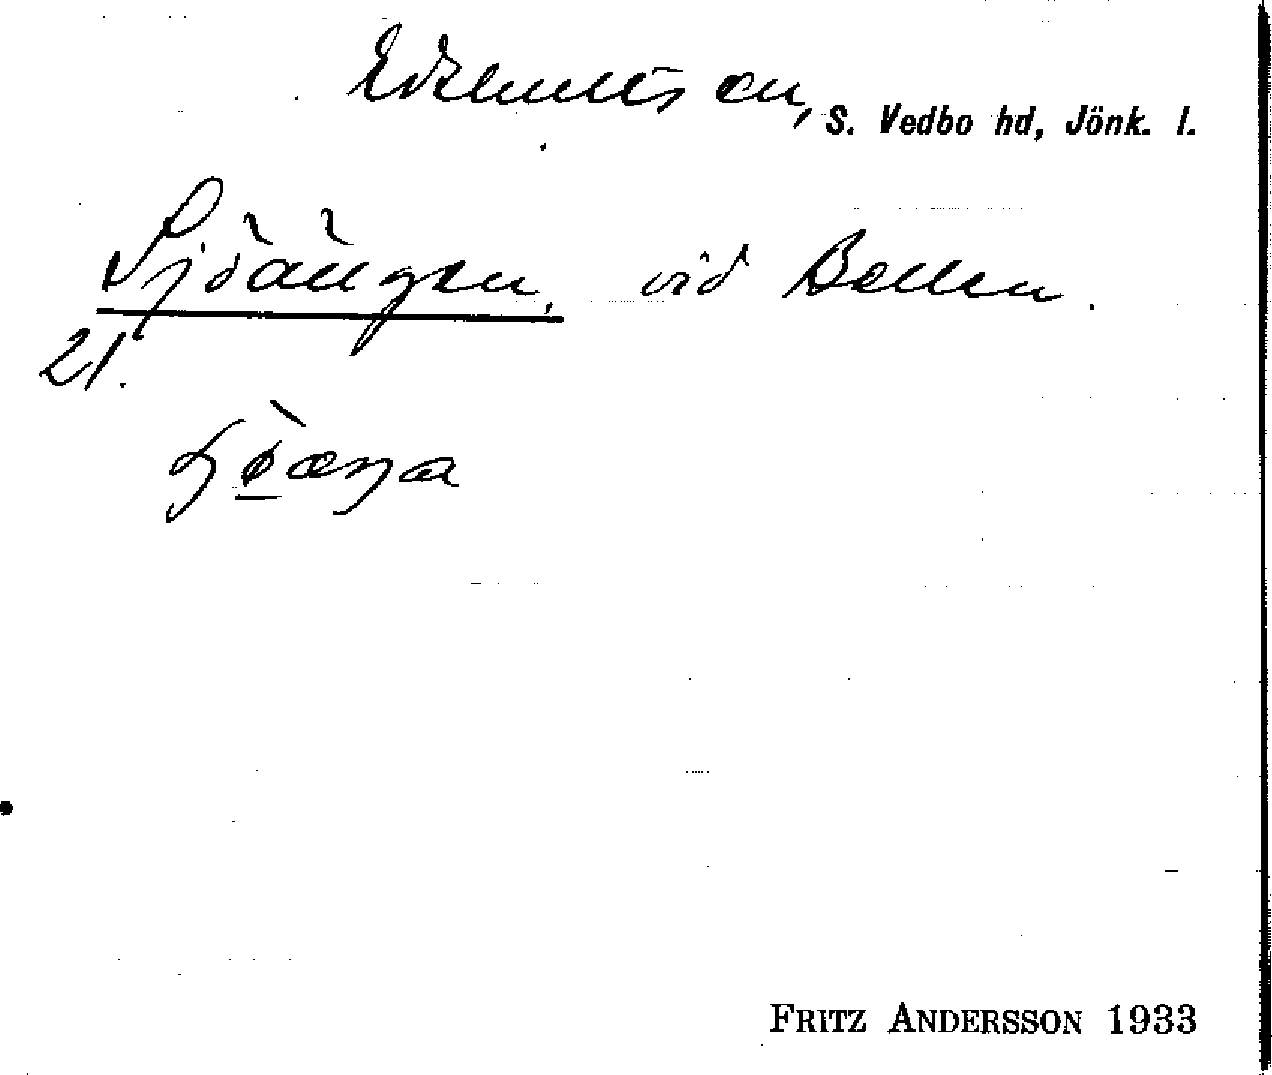 Edshults sn, S. Vedbo hd, Jönk. l.
Sjöängen. vid Bellen.
21.
FRITZ ANDERSSON 1933